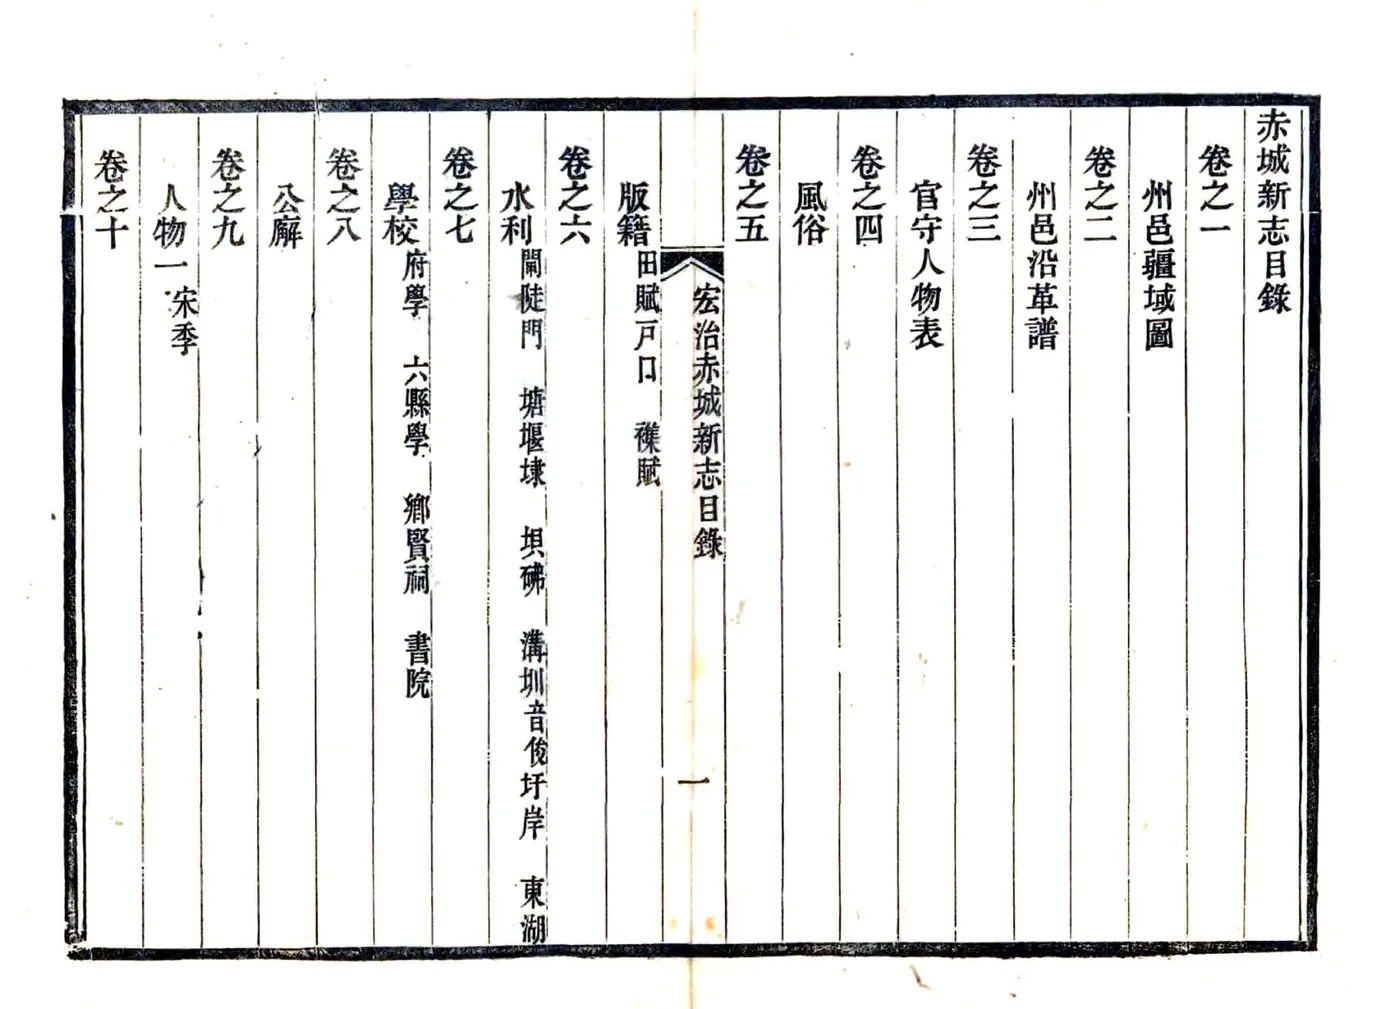 赤城新志目錄
卷之一
州邑疆域圖
卷之二
州邑沿革譜
卷之三
官守人物表
卷之四
風俗
卷之五
宏治赤城新志目錄
一
版籍 田賦戸口 襍賦
卷之六
水利 閘陡門 塘堰埭 垻砩 溝圳音俊圩岸 東湖
卷之七
學校 府學 六縣學 鄉賢祠 書院
卷之八
公廨
卷之九
人物一 宋季
卷之十